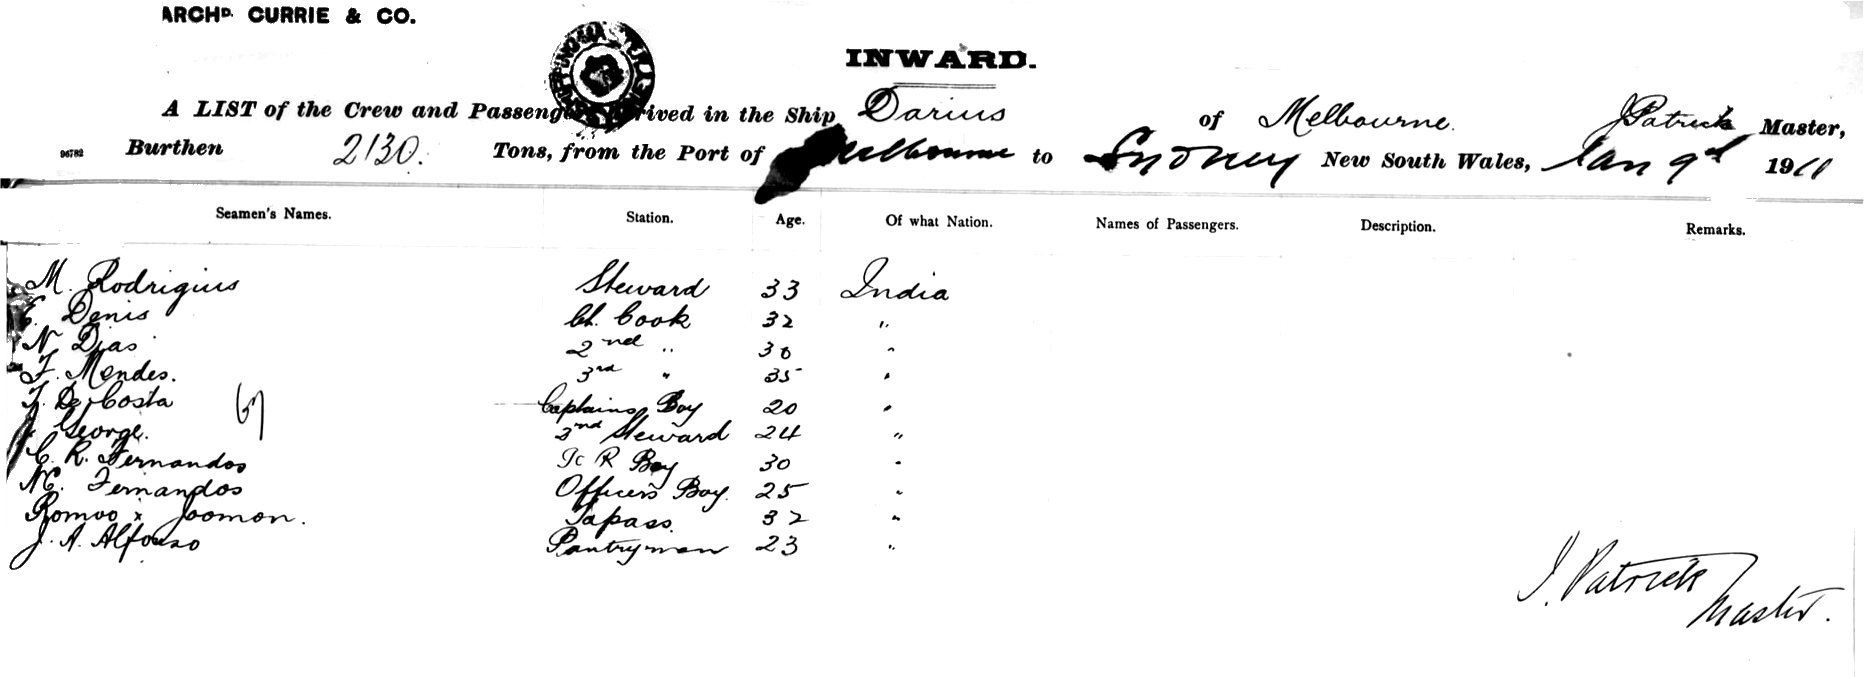 ARCHD. CURRIE & CO.
INWARD.
A LIST of the Crew and Passengers arrived in the Ship Darius of Melbourne. J Patrick Master,
96782 Burthen 2130. Tons, from the Port of Melbourne to Sydney New South Wales, Jan 9th 1911
Seamen's Names. Station. Age. Of what Nation. Names of Passengers. Description. Remarks.
M. Rodrigius Steward 33 India
E. Denis Ch. Cook 32 "
N Dias 2nd " 30 "
F. Mendes. 3rd " 35 "
De Costa Captains Boy 20 "
J George. 2nd Steward 24 "
C. R. Fernandos R Boy 30 "
Fernandos Officers Boy. 25 "
Romoo x Joomon. Topass. 32 "
J. A. Alfonso Pantryman 23 "
J. Patrick
Master.